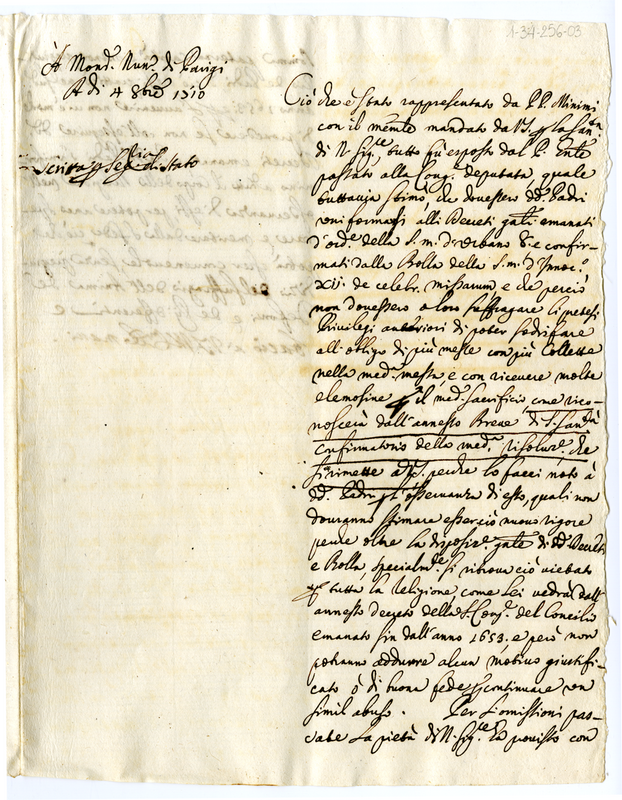 1-34-256-03
A Mons.r Nun.o di Parigi
A di 4 8bre 1710
scritta p Seg.ria di Stato
Ciò che è stato rappresentato da PP. Minimi
con il mem.le mandato da V.S. p la San.tà
di N. Sig.re tutto fù esposto dal P. Ente
passato alla Cong. deputata, quale
tuttavia stimò, che dovessero dd. Padri
uniformarsi alli Decreti gnli emanati
d'ord.e della s. m. d'Urbano 8. e confir-
mati dalla Bolla della s. m. d'Innoc.o
XII. de celebr. missarum e che perciò
non dovessero a loro suffragare li pretesi
Privilegi anteriori di poter sodisfare
all'obligo di più messe con più Collette
nella med. messa, e con ricevere molte
elemosine p il med. sacrificio, come rico-
noscerà dall'annesso Breve di S. San.tà
confirmatorio della med.a risoluz.e che
si rimette a V.S. perche lo facci noto à
dd. Padri p l'osservanza di esso, quali non
dovranno stimare esserciò nuovo rigore
perche oltre la disposiz.e gnle di dd. Decreti
e Bolla, specialm.te si ritrova ciò vietato
p tutta la Religione, come lei vedrà dall'
annesso decreto della S. Cong. del Concilio
emanato fin dall'anno 1653. e però non
potranno addurre alcun motivo giustifi-
cato ò di buona fede p continuare un
simil abuso. Per l'omissioni pas-
sate la pietà di N. Sig.re hà provisto con